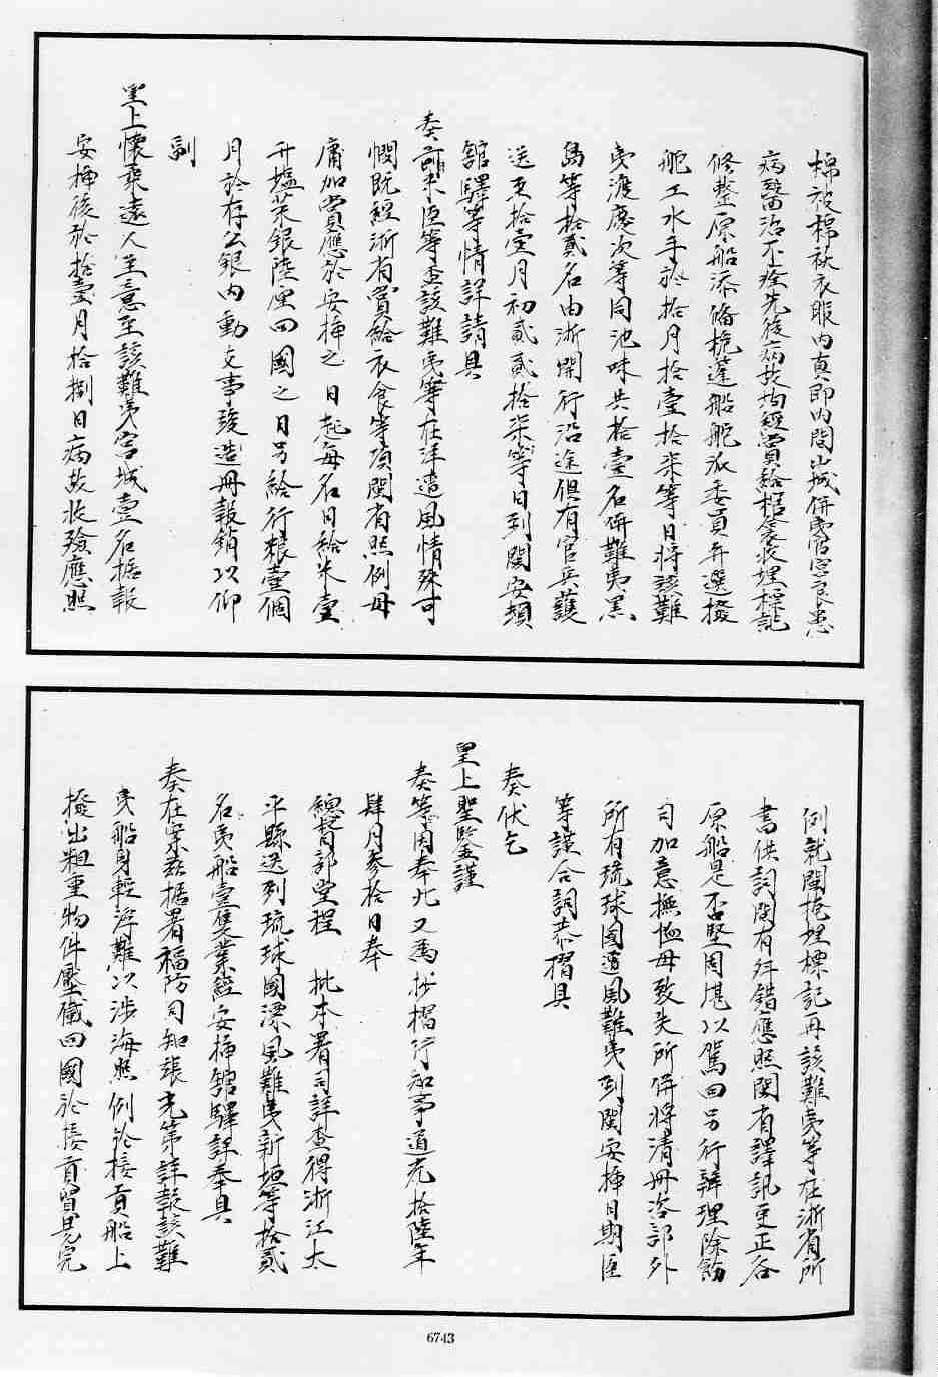 棉被棉袄衣服內真即內間山城併夷官宮良患
病醫治不痊先後病故均經賞給棺衾收埋標記
修整原船添備桅蓬船舵派委員弁選撥
舵工水手於拾月拾壹拾柒等日將該難
夷渡慶次等同池味共拾壹名併難夷黑
島等拾貳名由浙開行沿途俱有官兵護
送至拾壹月初貳貳拾柒等日到閩安頓
館驛等情詳請具
奏前來臣等查該難夷等在洋遭風情殊可
憫既經浙省賞給衣食等項閩省照例毋
庸加賞應於安揷之日起每名日給米壹
升塩菜銀陸厘回國之日另給行糧壹個
月於存公銀內動支事竣造冊報銷以仰
副
皇上懷柔遠人至意至該難夷宮城壹名據報
安揷後於拾壹月拾捌日病故收殮應照
例就閩掩埋標記再該難夷等在浙省所
書供詞閩有舛錯應照閩省譯訊更正各
原船是否堅固堪以駕回另行辦理除飭
司加意撫恤毋致失所併將清冊咨部外
所有琉球國遭風難夷到閩安揷日期臣
等謹合詞恭摺具
奏伏乞
皇上聖鑒謹
奏等因奉此又為抄摺行知事道光拾陸年
肆月參拾日奉
總督部堂程 批本署司詳查得浙江太
平縣送到琉球國漂風難夷新垣等拾貳
名夷船壹隻業經安揷館驛詳奉具
奏在案茲據署福防同知張光第詳報該難
夷船身輕浮難以涉海照例於接貢船上
撥出粗重物件壓儎回國於接貢貿易完
6743